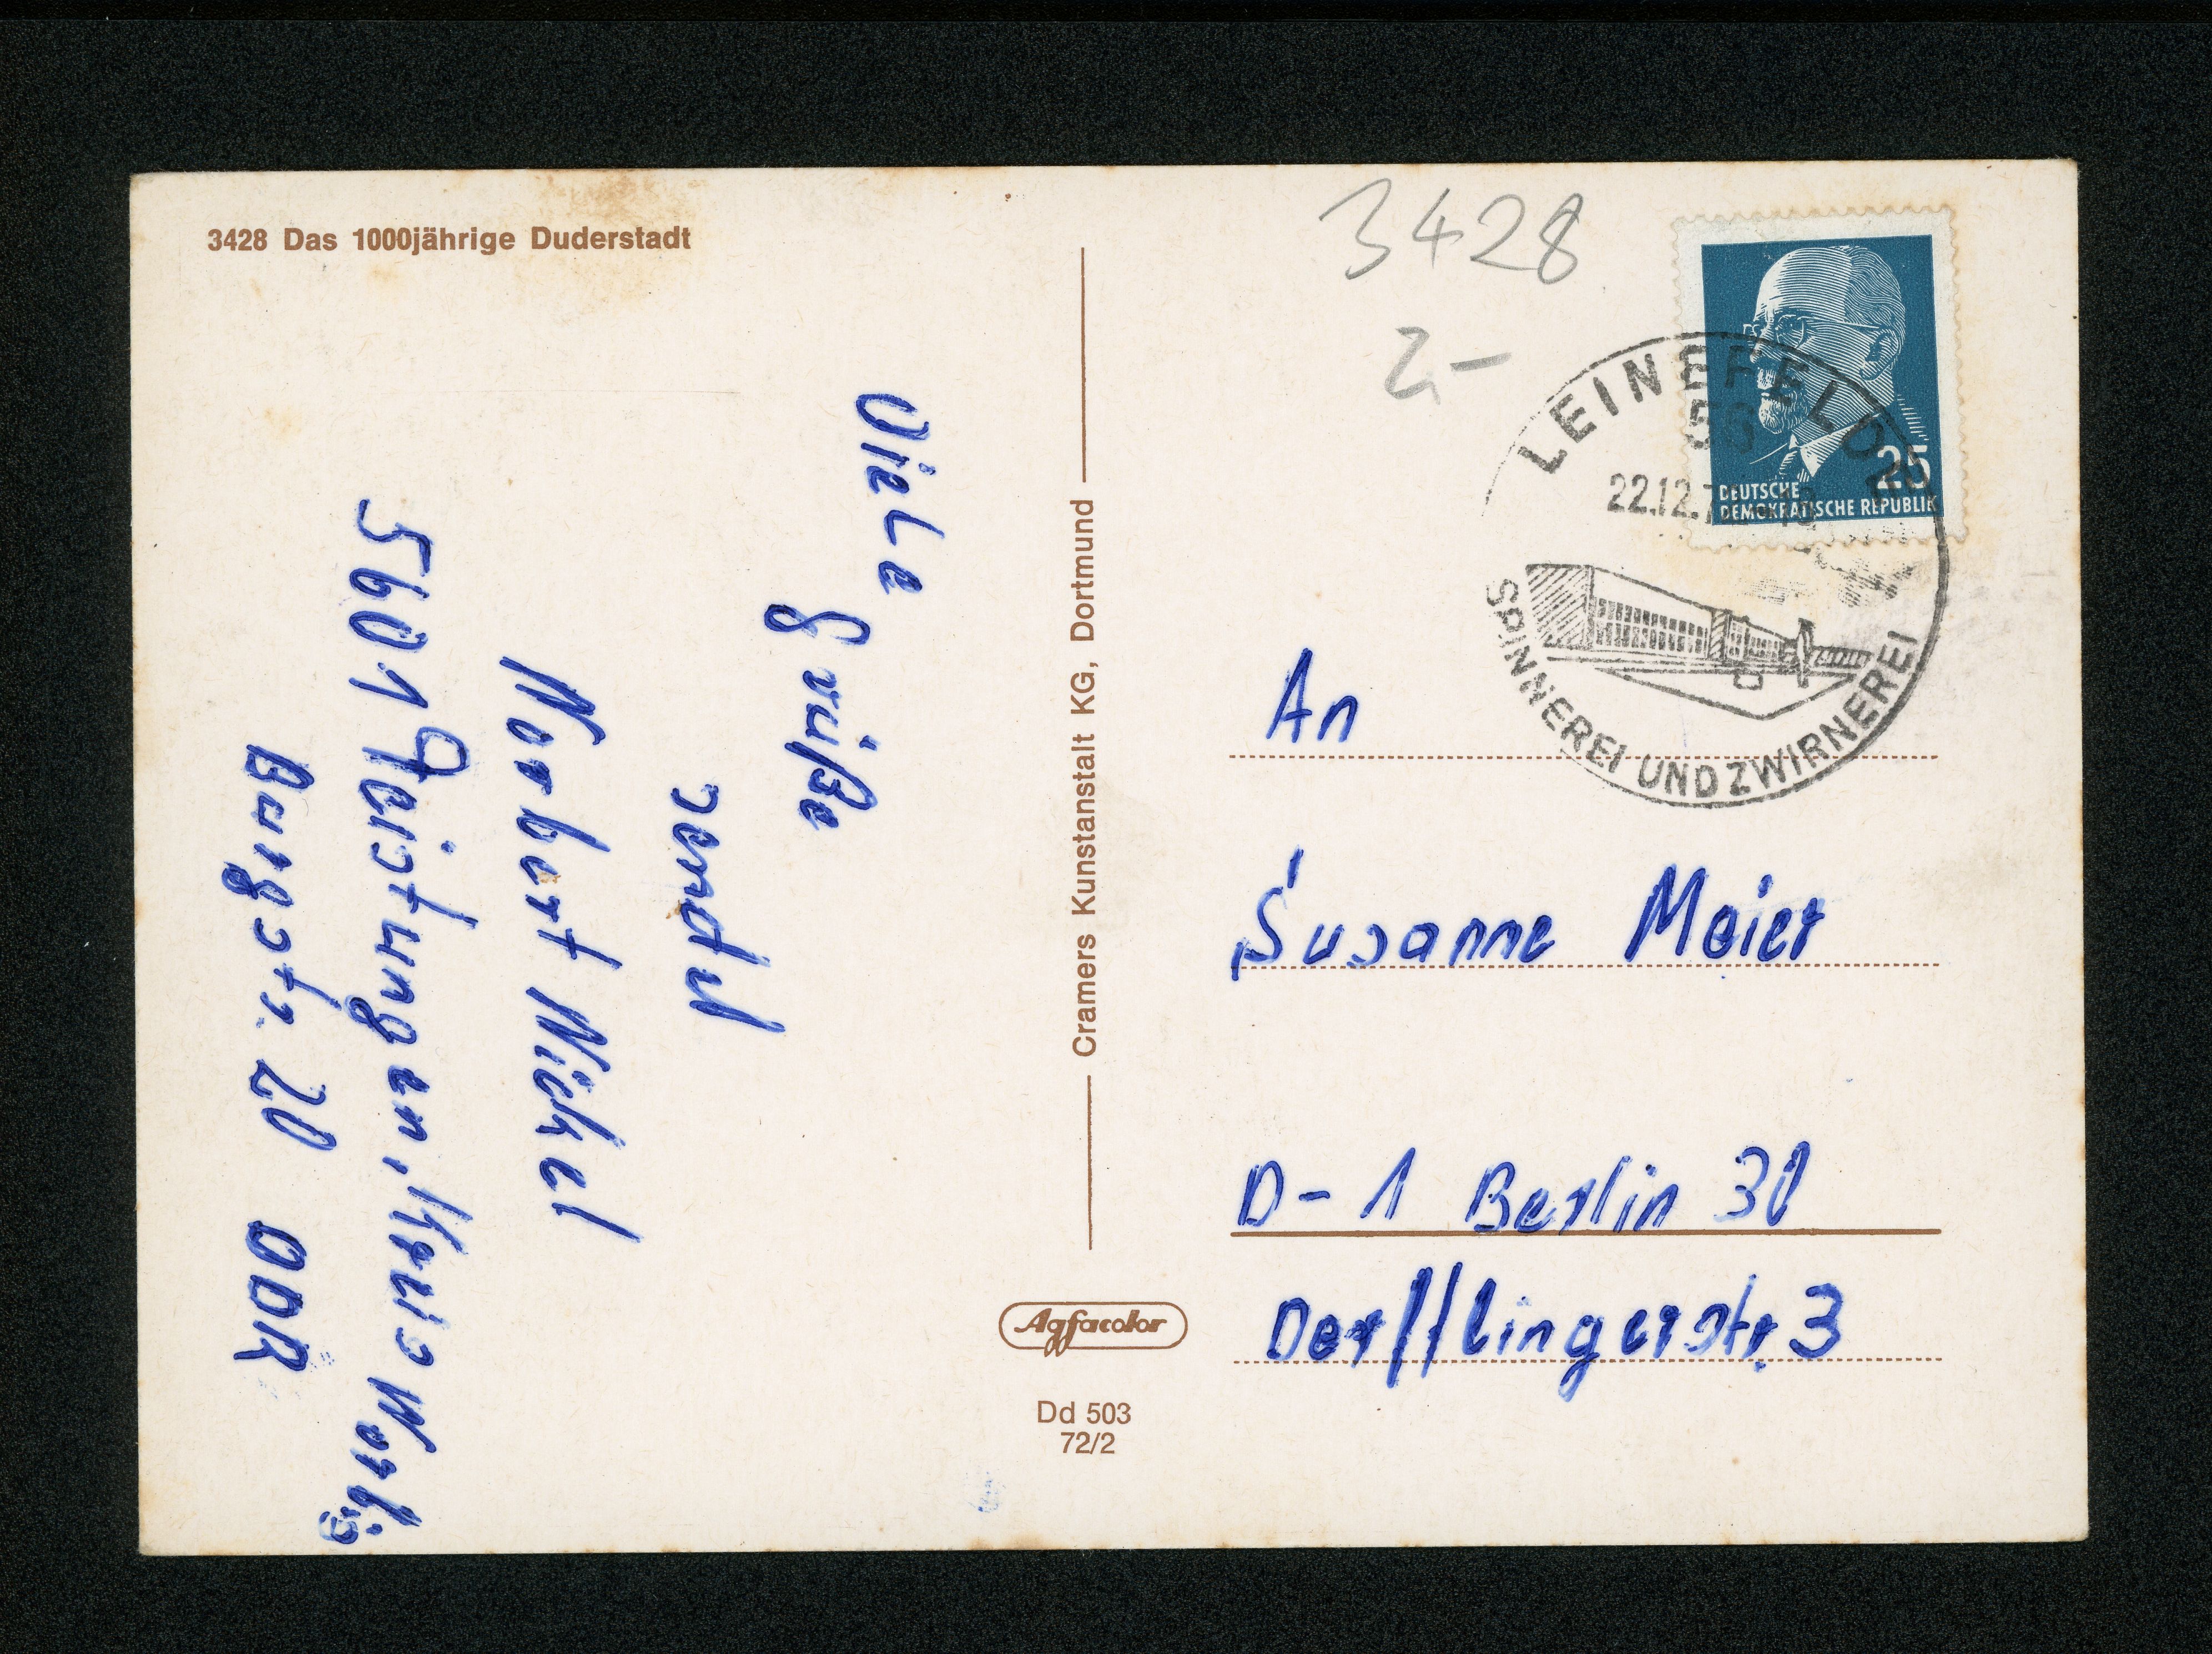 3428 Das 1000jährige Duderstadt
Viele Grüße
sendet
Norbert Nickel
5601 Teistungen, Kreis Worbis
Burgstr. 20 DDR
Cramers Kunstanstalt KG, Dortmund
Agfacolor
Dd 503
72/2
3428
2,-
25
DEUTSCHE
DEMOKRATISCHE REPUBLIK
LEINEFELDE
56
22.12.
SPINNEREI UND ZWIRNEREI
An
Susanne Meier
D-1 Berlin 30
Derfflingerstr. 3